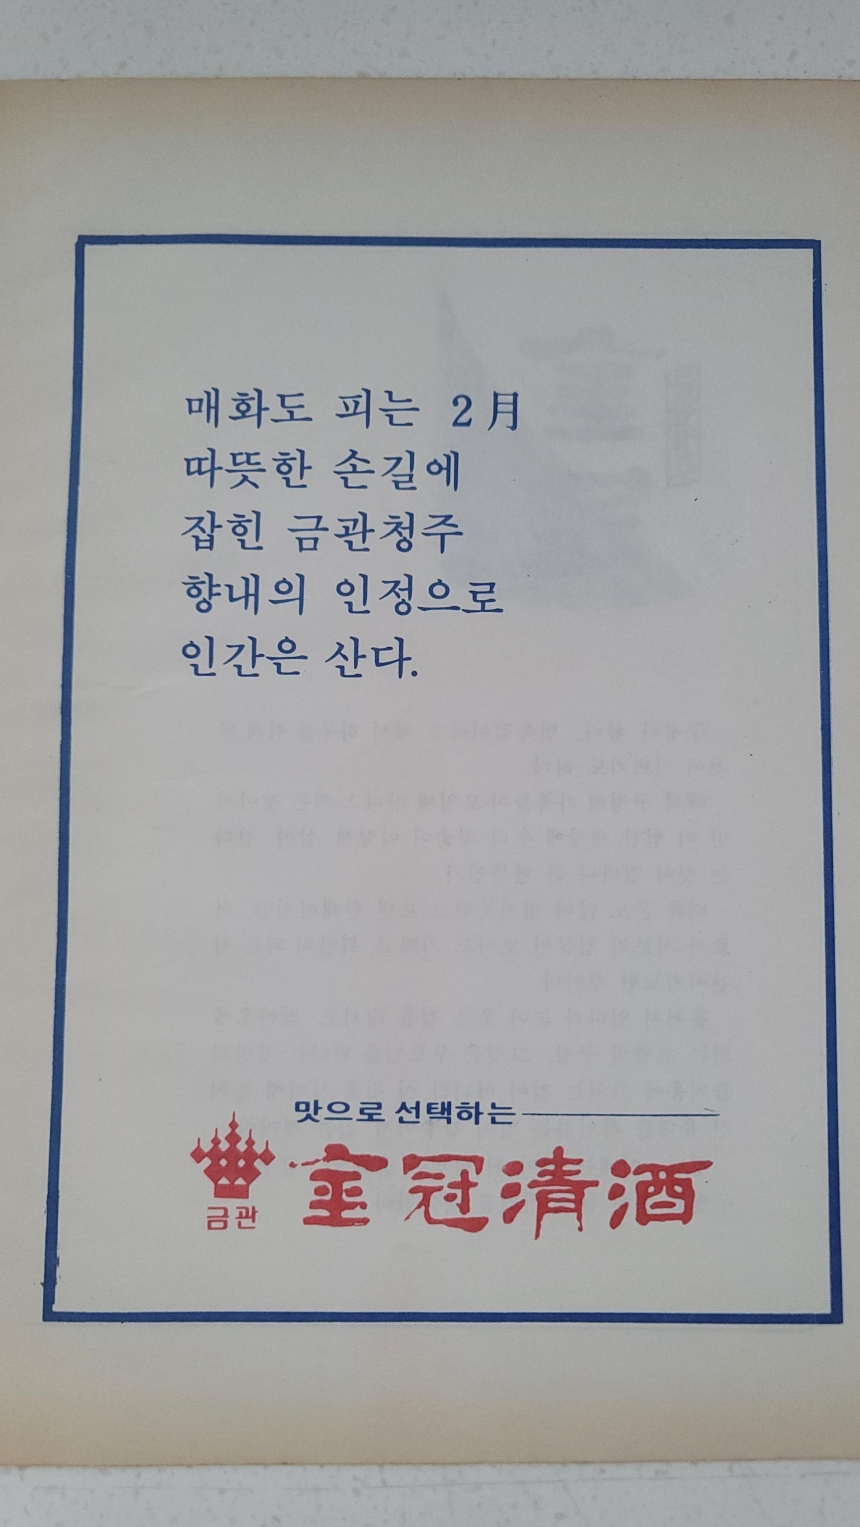 매화도 피는 2月
따뜻한 손길에
잡힌 금관청주
향내의 인정으로
인간은 산다.
맛으로 선택하는
금관
金冠清酒